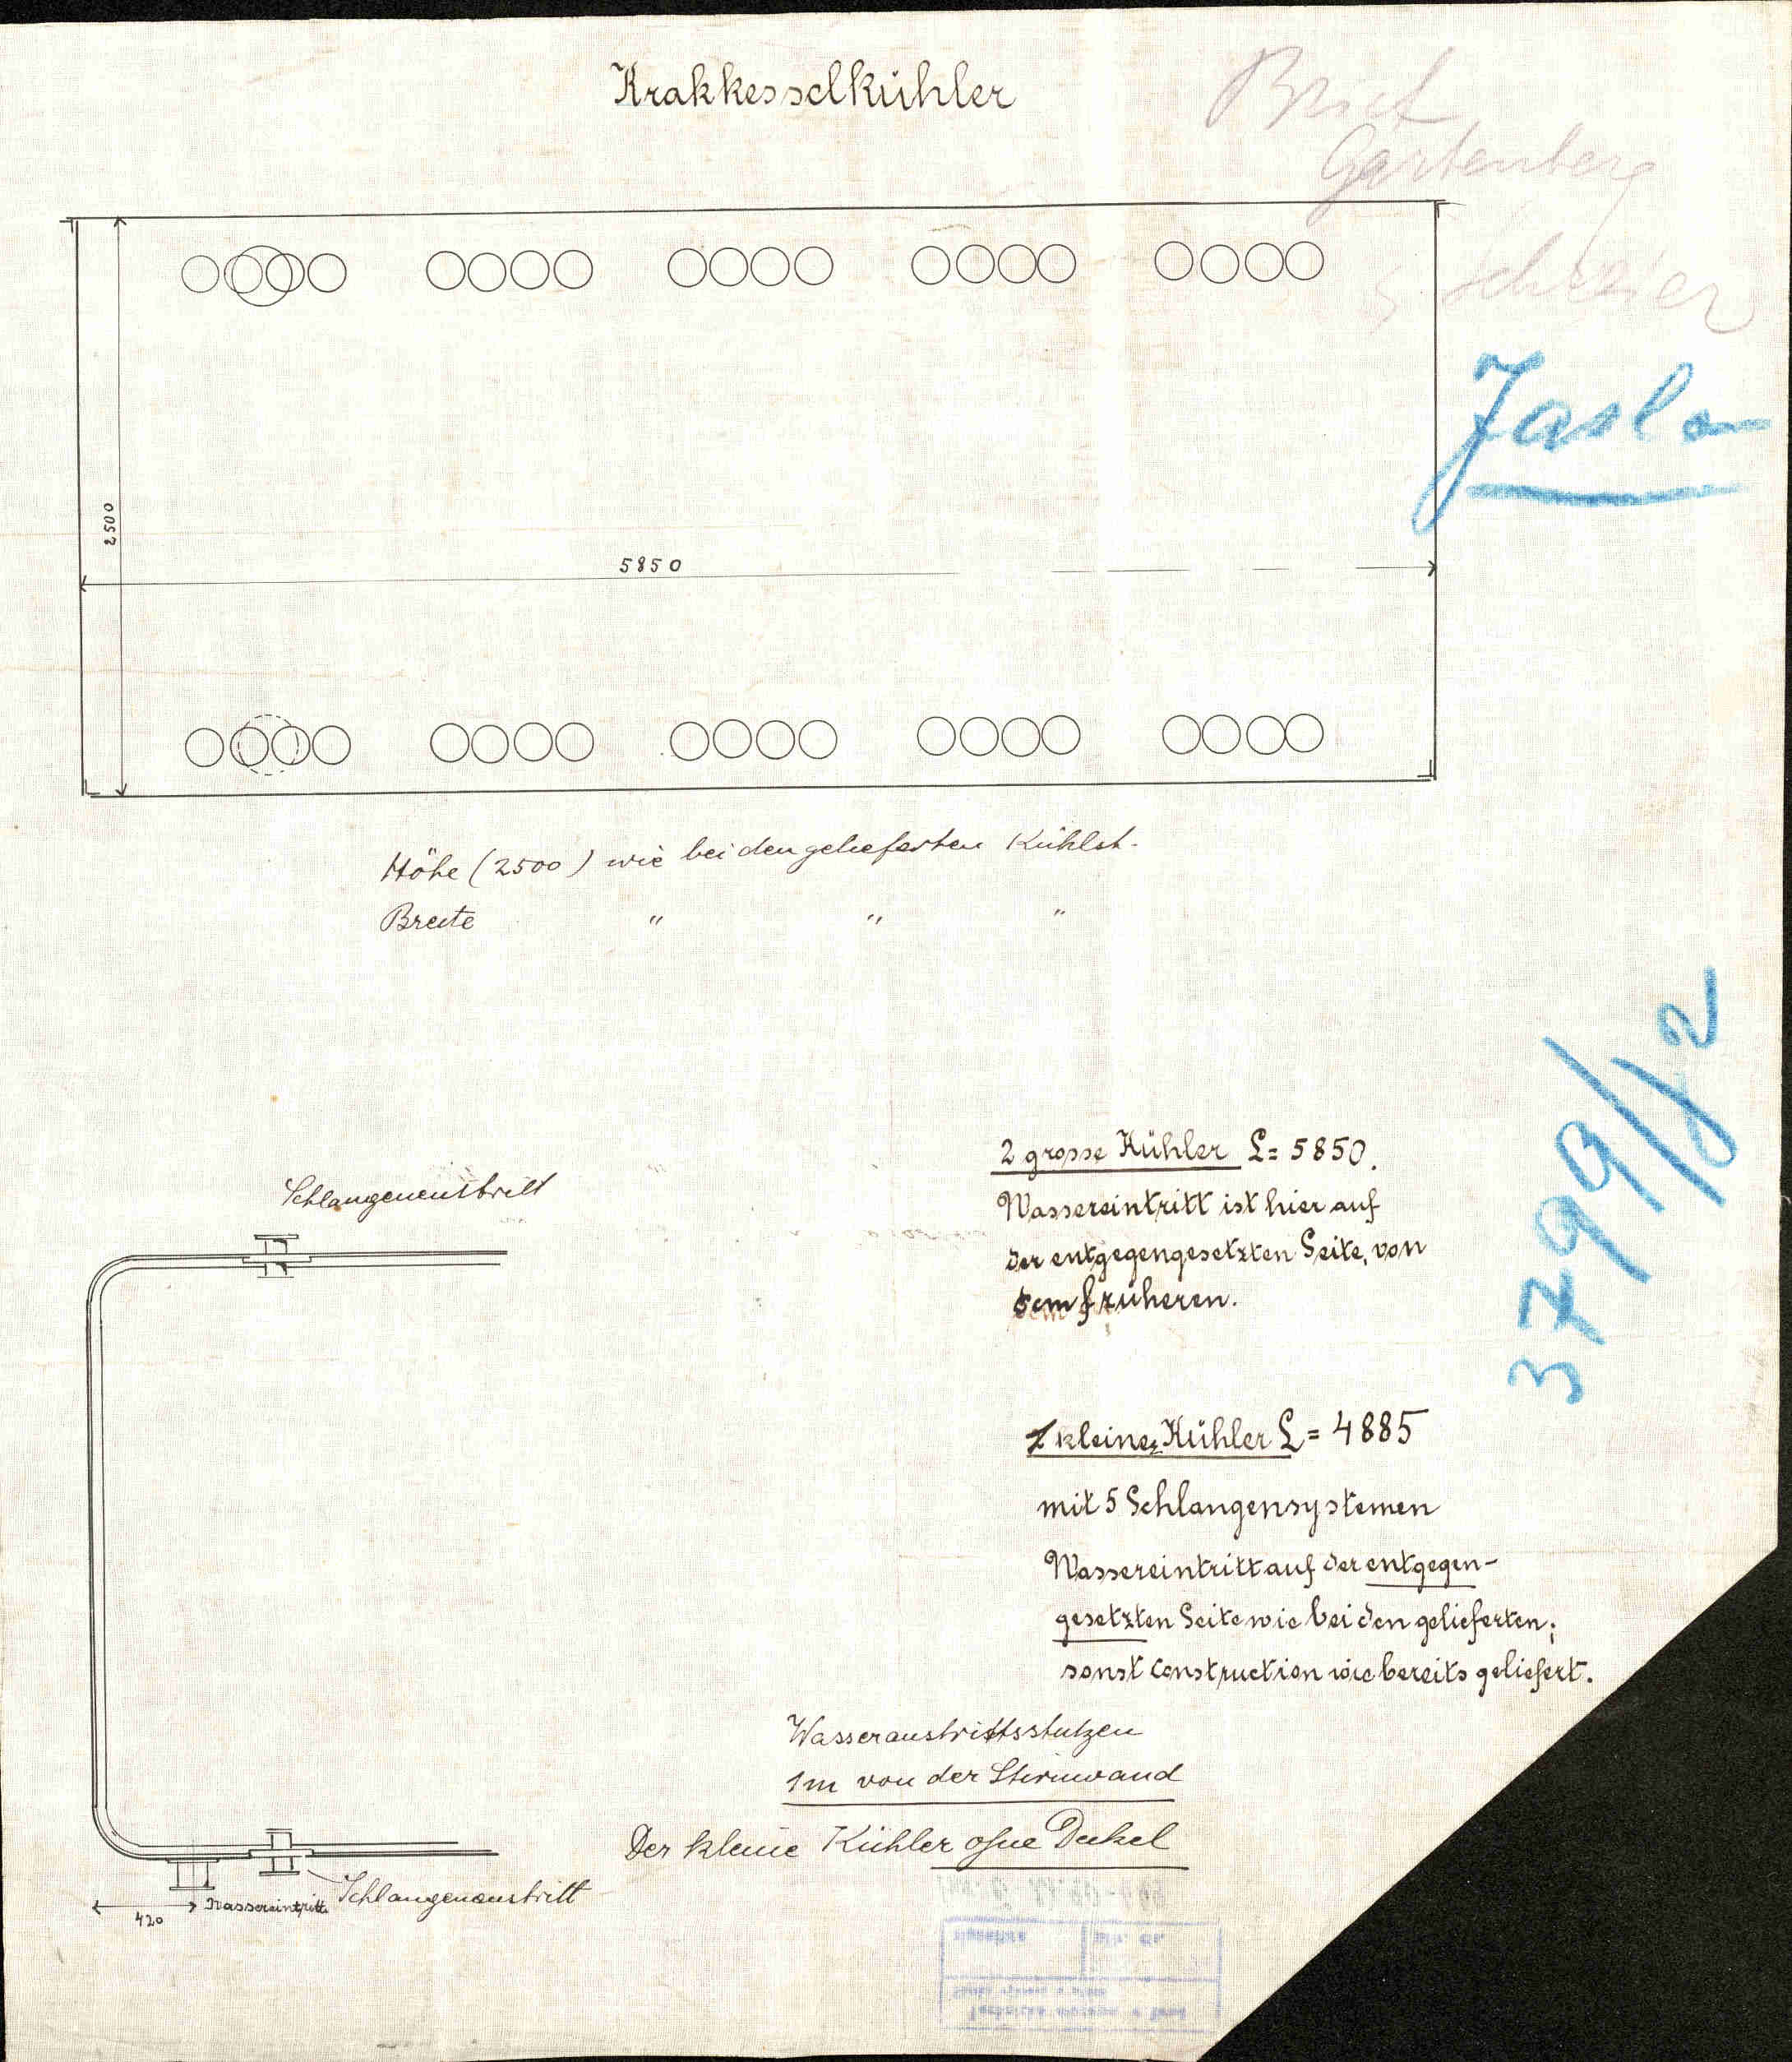 Krakkesselkühler
Gartenberg
Jaslo
2500
5850
Höhe (2500) wie bei den gelieferten Kühlst.
Breite " " "
3799/2
Schlangeneintritt
2 grosse Kühler L = 5850.
Wassereintritt ist hier auf
der entgegengesetzten Seite, von
dem früheren.
1 kleiner Kühler L = 4885
mit 5 Schlangensystemen
Wassereintritt auf der entgegen-
gesetzten Seite wie bei den gelieferten;
sonst Construction wie bereits geliefert.
Wasseraustrittsstutzen
1m von der Stirnwand
Der kleine Kühler ohne Deckel
420
Wassereintritt
Schlangenaustritt